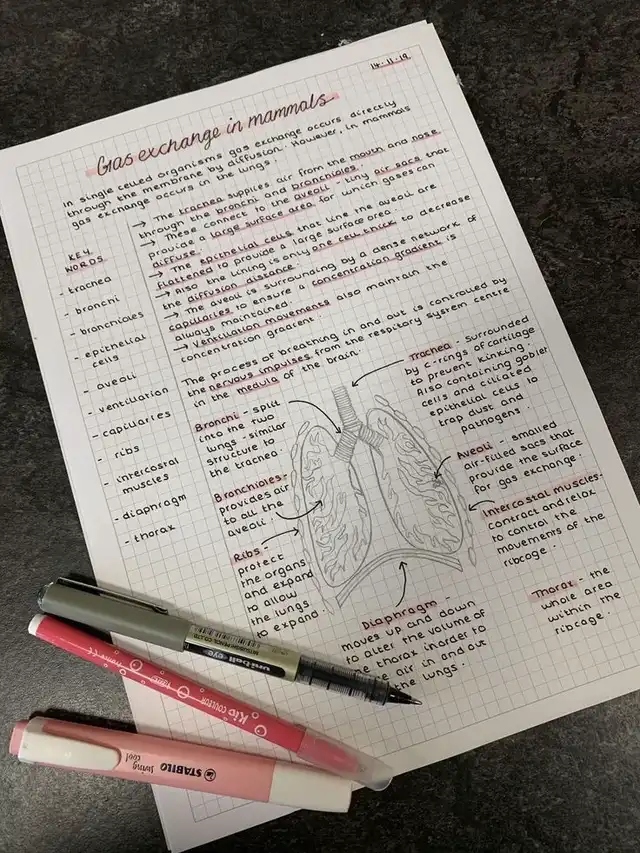 14.11.19
Gas exchange in mammals.
In single celled organisms gas exchange occurs directly
through the membrane by diffusion. However, in mammals
gas exchange occurs in the lungs.
KEY
WORDS
- trachea
- bronchi
- bronchioles
- epithelial
cells
- aveoli
- ventilation
- capillaries
- ribs
- intercostal
muscles
- diaphragm
- thorax
→ The trachea supplies air from the mouth and nose
through the bronchi and bronchioles.
→ These connect to the aveoli - tiny air sacs that
provide a large surface area for which gases can
diffuse.
→ The epithelial cells that line the aveoli are
flattened to provide a large surface area.
→ Also the lining is only one cell thick to decrease
the diffusion distance.
→ The aveoli is surrounding by a dense network of
capillaries to ensure a concentration gradient is
always maintained.
→ Ventilation movements also maintain the
concentration gradient.
The process of breathing in and out is controlled by
the nervous impulses from the respitory system centre
in the medula of the brain.
Bronchi - split
into the two
lungs - similar
structure to
the trachea.
Bronchioles -
provides air
to all the
aveoli.
Ribs -
protect
the organs
and expand
to allow
the lungs
to expand.
Trachea - surrounded
by c-rings of cartilage
to prevent kinking.
Also containing goblet
cells and ciliated
epithelial cells to
trap dust and
pathogens.
Aveoli - smalled
air-filled sacs that
provide the surface
for gas exchange.
Intercostal muscles-
contract and relax
to control the
movements of the
ribcage.
Diaphragm -
moves up and down
to alter the volume of
the thorax inorder to
air in and out
the lungs.
Thorax - the
whole area
within the
ribcage.
uni-ball eye
MITSUBISHI PENCIL CO.,LTD.
Kid COULEUR
STABILO
swing
cool